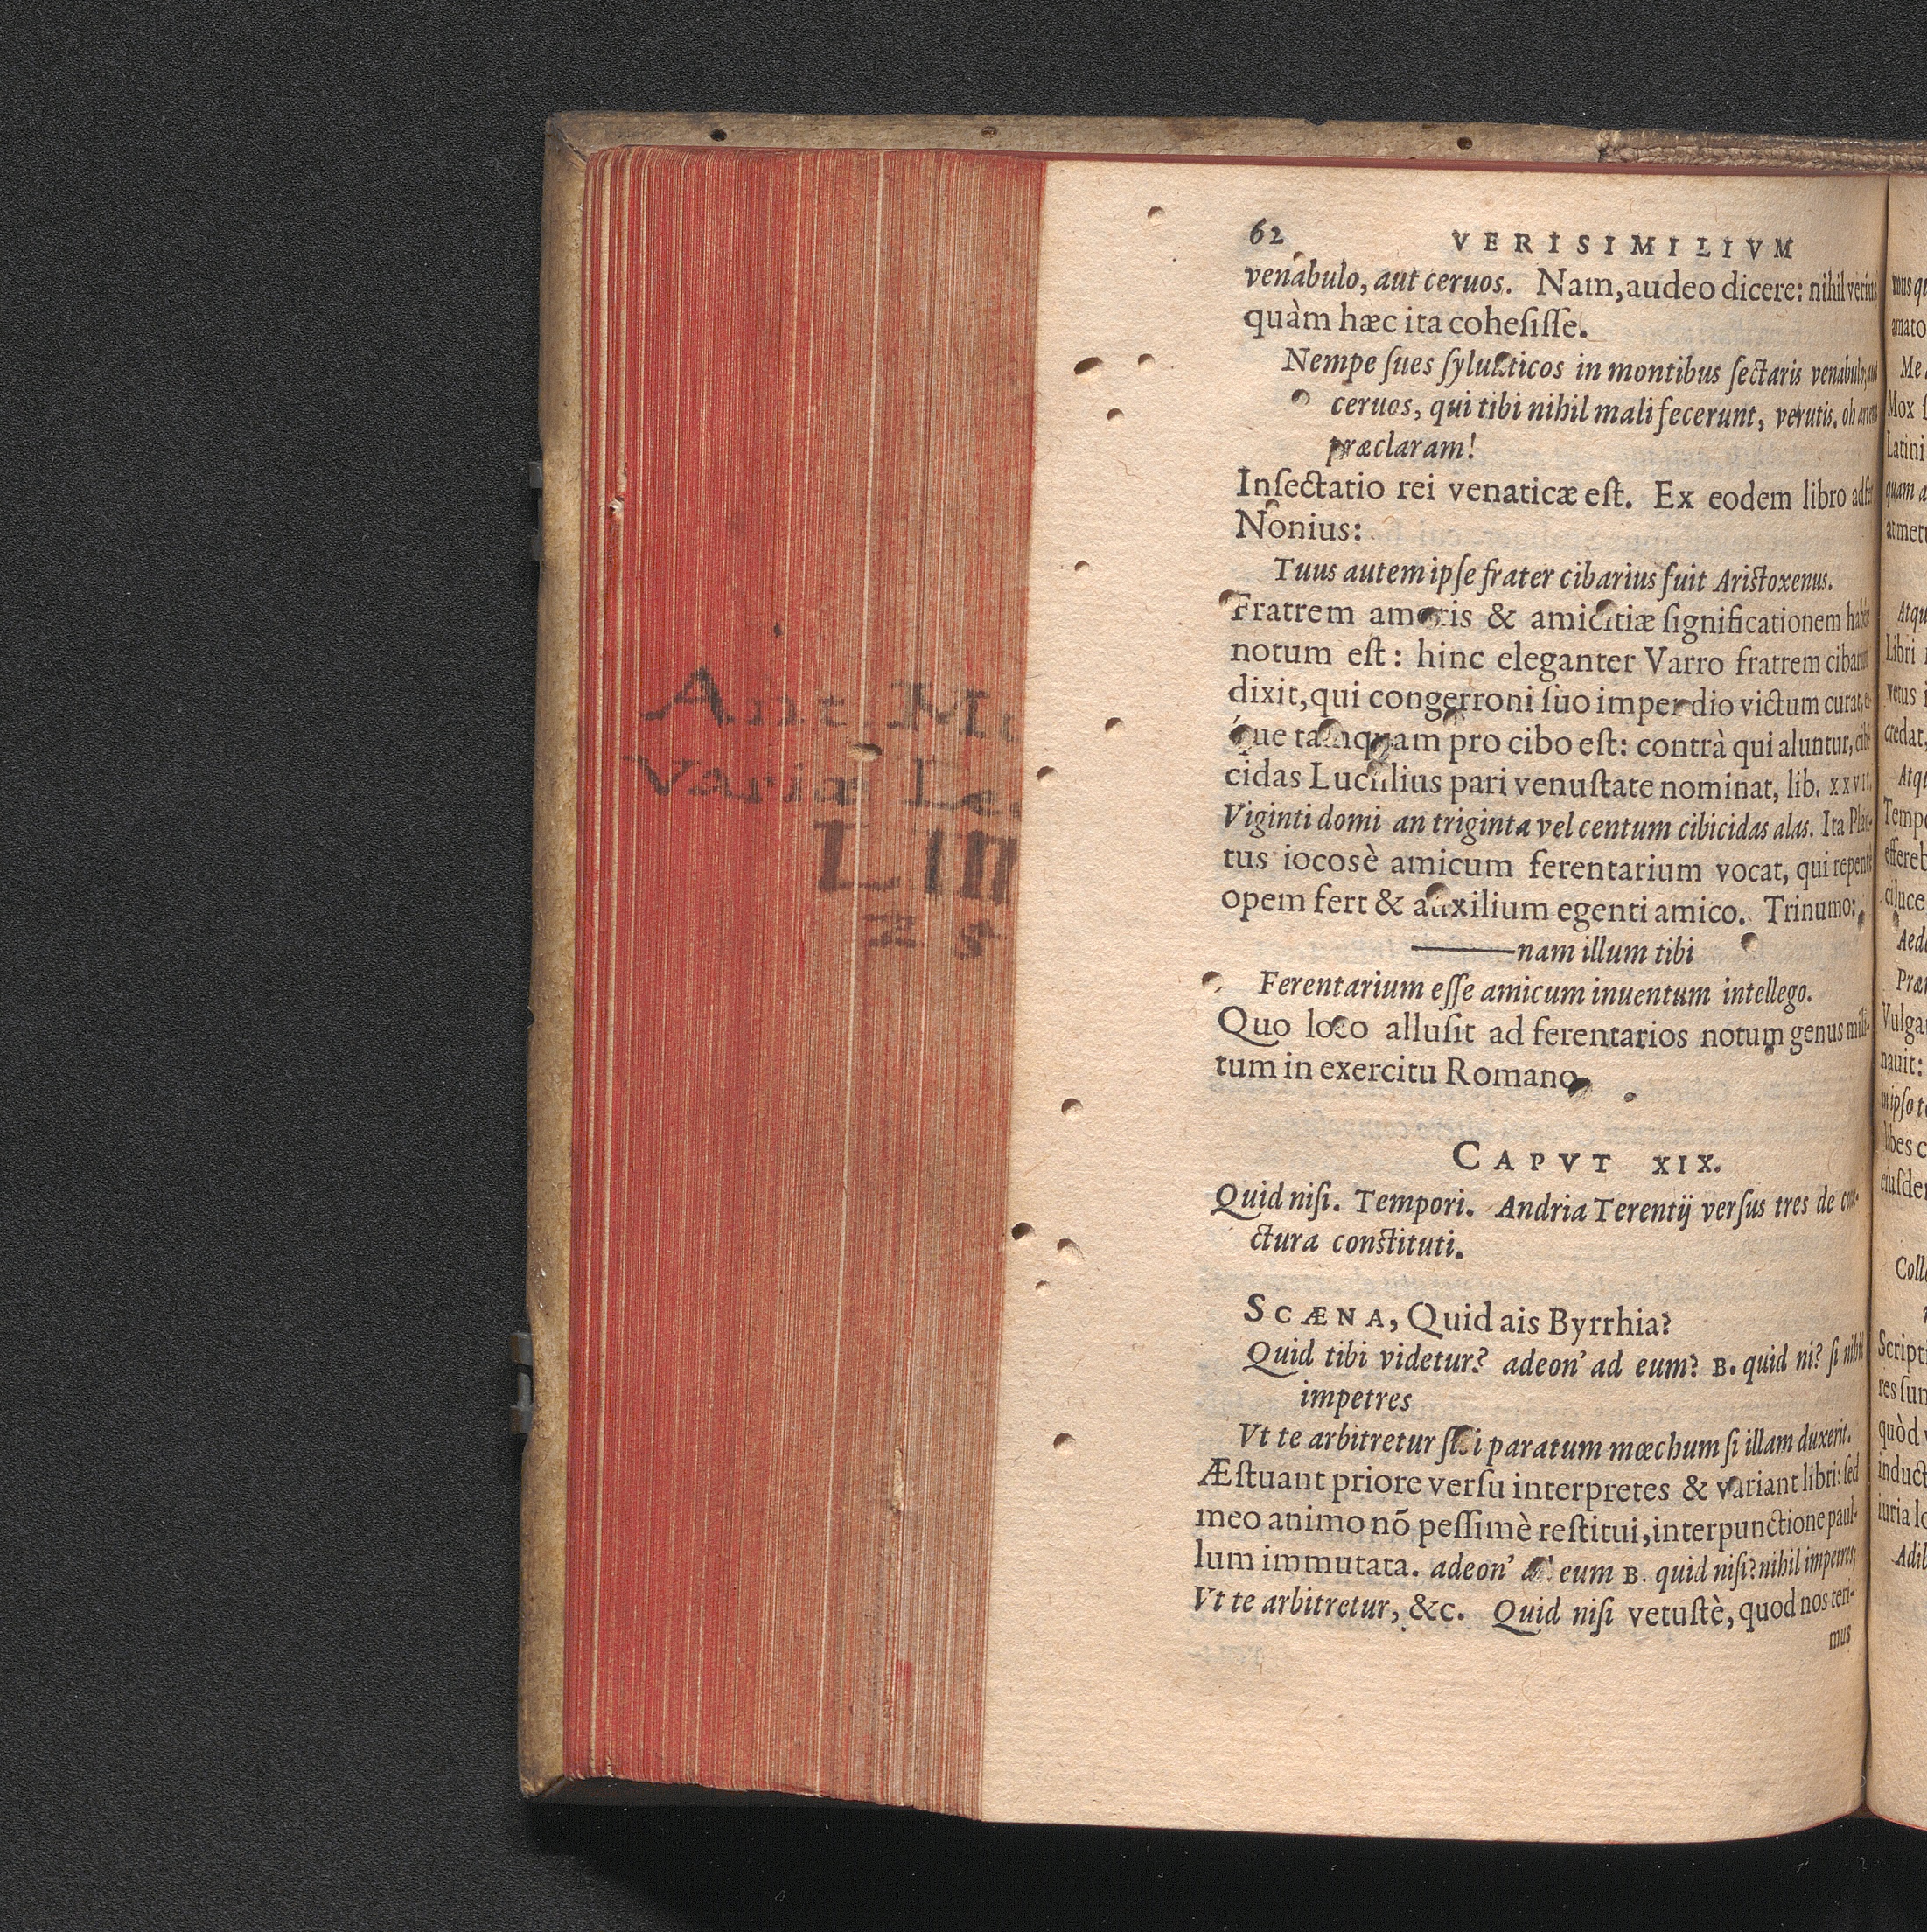 62 VERISIMILIVM
venabulo, aut ceruos. Nam, audeo dicere: nihil verius
quàm hæc ita cohesisse.
Nempe sues syluaticos in montibus sectaris venabulo, aut
ceruos, qui tibi nihil mali fecerunt, verutis. oh artem
præclaram!
Insectatio rei venaticæ est. Ex eodem libro adfert
Nonius:
Tuus autem ipse frater cibarius fuit Aristoxenus.
Fratrem amoris & amicitiæ significationem habere
notum est: hinc eleganter Varro fratrem cibarium
dixit, qui congerroni suo impendio victum curat,
que tamquam pro cibo est: contrà qui aluntur, cibi-
cidas Lucillius pari venustate nominat, lib. XXVII.
Viginti domi an triginta vel centum cibicidas alas. Ita Plau-
tus iocosè amicum ferentarium vocat, qui repente
opem fert & auxilium egenti amico. Trinumo:
——nam illum tibi
Ferentarium esse amicum inuentum intellego.
Quo loco allusit ad ferentarios notum genus mili-
tum in exercitu Romano.
CAPVT XIX.
Quid nisi. Tempori. Andria Terentij versus tres de con-
ctura constituti.
SCÆNA, Quid ais Byrrhia?
Quid tibi videtur? adeon' ad eum? B. quid ni? si nihil
impetres
Vt te arbitretur sibi paratum mœchum si illam duxerit.
Æstuant priore versu interpretes & variant libri: sed
meo animo nõ pessimè restitui, interpunctione paul-
lum immutata. adeon' ad eum B. quid nisi? nihil impetres;
Vt te arbitretur, &c. Quid nisi vetustè, quod nos teri-
mus
Ant. Mu
Variæ Lec
LIII